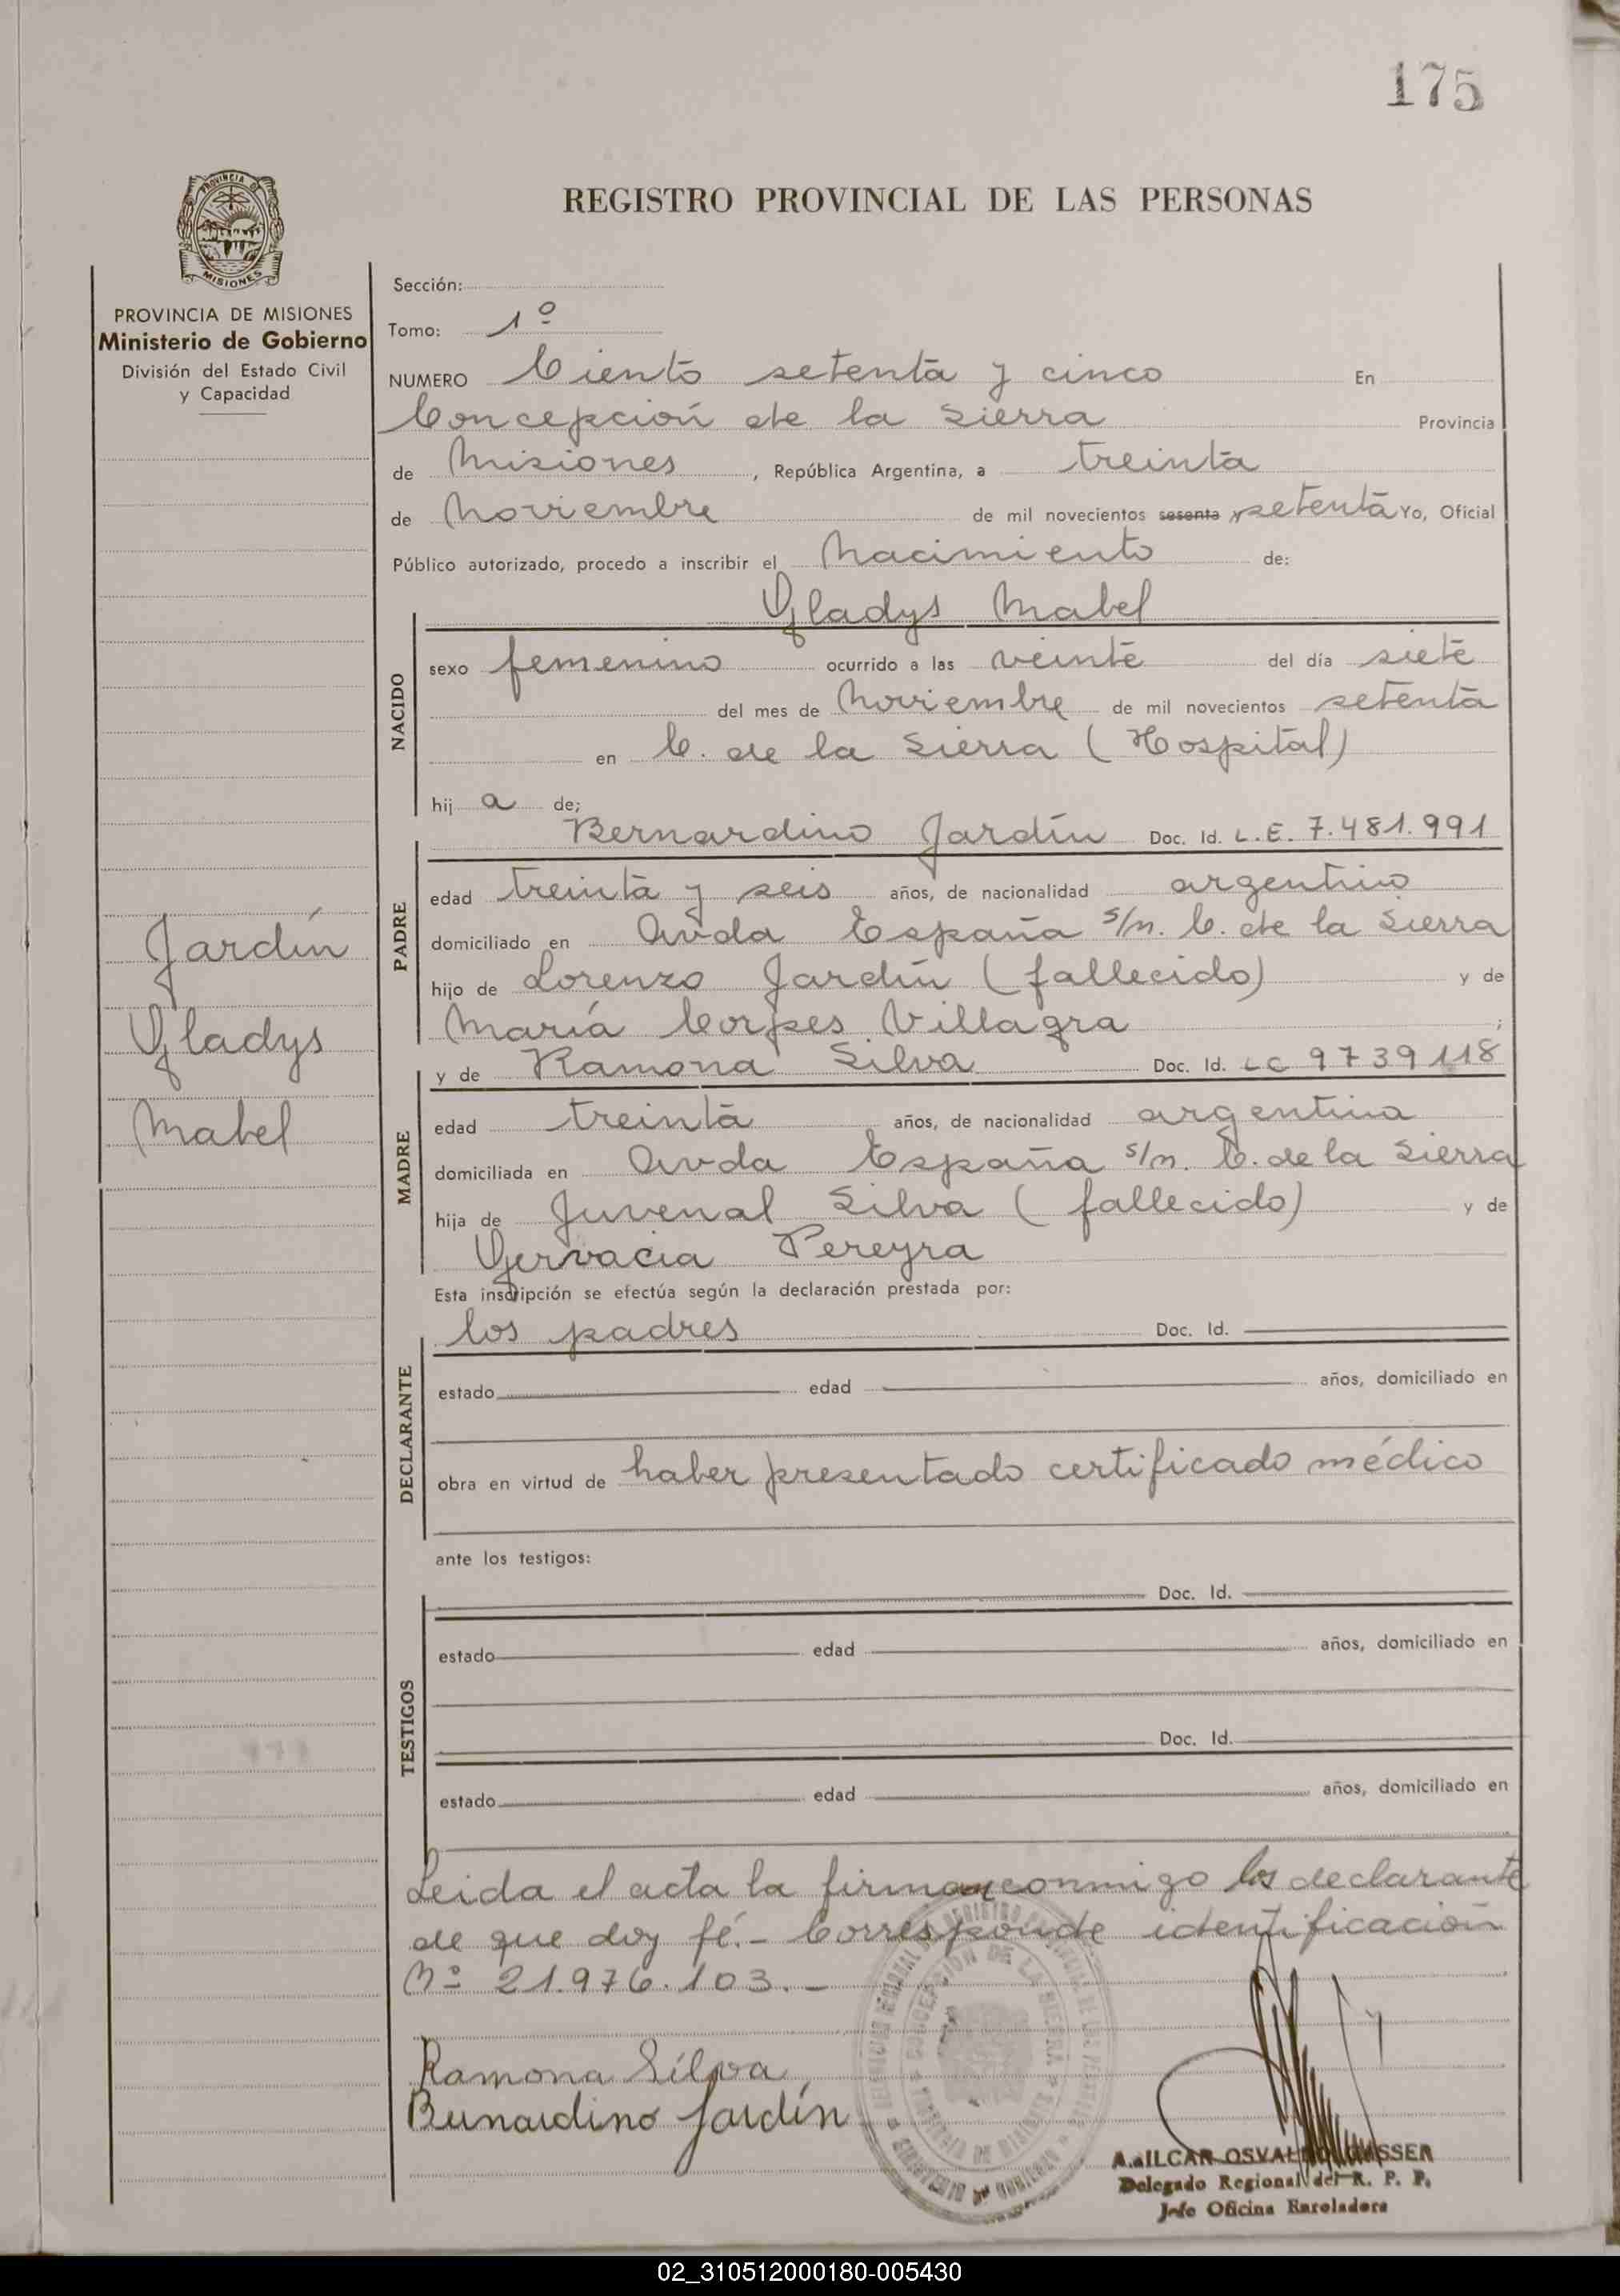 175
PROVINCIA DE
MISIONES
REGISTRO PROVINCIAL DE LAS PERSONAS
PROVINCIA DE MISIONES
Ministerio de Gobierno
División del Estado Civil
y Capacidad
Jardín
Gladys
Mabel
Sección:
Tomo: 1º
NUMERO Ciento setenta y cinco En
Concepción de la Sierra Provincia
de Misiones, República Argentina, a treinta
de Noviembre de mil novecientos sesenta y setenta Yo, Oficial
Público autorizado, procedo a inscribir el Nacimiento de:
Gladys Mabel
NACIDO
sexo femenino ocurrido a las veinte del día siete
del mes de Noviembre de mil novecientos setenta
en C. de la Sierra (Hospital)
hij a de;
Bernardino Jardín Doc. Id. L.E. 7.481.991
PADRE
edad treinta y seis años, de nacionalidad argentino
domiciliado en Avda España s/n. C. de la Sierra
hijo de Lorenzo Jardín (fallecido) y de
María Corpes Villagra ;
y de Ramona Silva Doc. Id. LC 9739118
MADRE
edad treinta años, de nacionalidad argentina
domiciliada en Avda España s/n. C. de la Sierra
hija de Juvenal Silva (fallecido) y de
Gervacia Pereyra
Esta inscripción se efectúa según la declaración prestada por:
los padres Doc. Id.
DECLARANTE
estado edad años, domiciliado en
obra en virtud de haber presentado certificado médico
ante los testigos:
Doc. Id.
TESTIGOS
estado edad años, domiciliado en
Doc. Id.
estado edad años, domiciliado en
Leida el acta la firman conmigo los declarante
de que doy fé.- Corresponde identificación
Nº 21.976.103.-
Ramona Silva
Bernardino Jardín
OSVALDO GASSER
Delegado Regional del R. P. P.
Jefe Oficina Enroladora
02_310512000180-005430